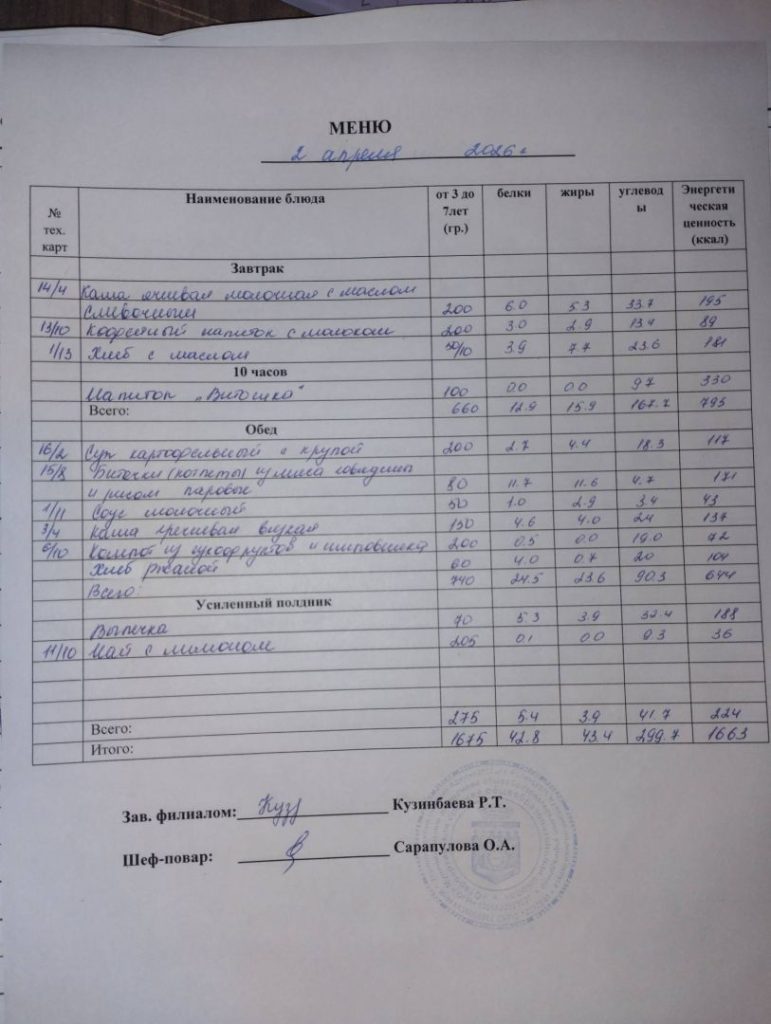 МЕНЮ
2 апреля 2026 г
№ тех. карт Наименование блюда от 3 до 7лет (гр.) белки жиры углевод ы Энергети ческая ценность (ккал)
Завтрак
14/4 Каша ячневая молочная с маслом
сливочным 200 6.0 5.3 33.7 195
13/10 Кофейный напиток с молоком 200 3.0 2.9 13.4 89
1/13 Хлеб с маслом 50/10 3.9 7.7 23.6 181
10 часов
Напиток „Витошка" 100 0.0 0.0 97 330
Всего: 660 12.9 15.9 167.7 795
Обед
16/2 Суп картофельный с крупой 200 2.7 4.4 18.3 117
15/8 Биточки (котлеты) из мяса говядины
и рисом паровые 80 11.7 11.6 4.7 171
1/11 Соус молочный 50 1.0 2.9 3.4 43
3/4 Каша гречневая вязкая 150 4.6 4.0 24 137
6/10 Компот из сухофруктов и шиповника 200 0.5 0.0 19.0 72
Хлеб ржаной 60 4.0 0.7 20 104
Всего: 740 24.5 23.6 90.3 644
Усиленный полдник
Выпечка 70 5.3 3.9 32.4 188
11/10 Чай с лимоном 205 0.1 0.0 9.3 36
Всего: 275 5.4 3.9 41.7 224
Итого: 1675 42.8 43.4 299.7 1663
Зав. филиалом: Кузинбаева Р.Т.
Шеф-повар: Сарапулова О.А.